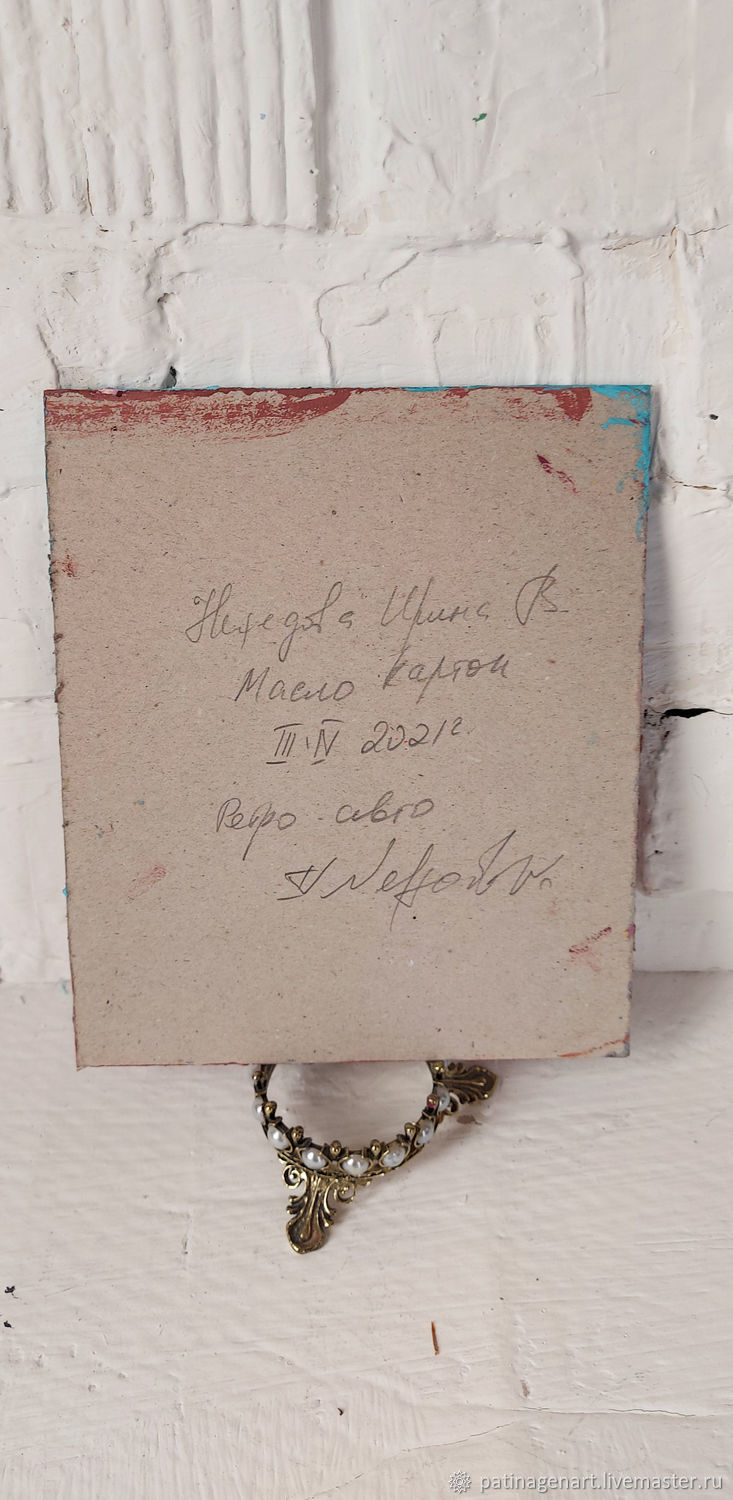 Ирина В
Масло картон
III-IV 2021г.
Ретро авто
patinagenart.livemaster.ru